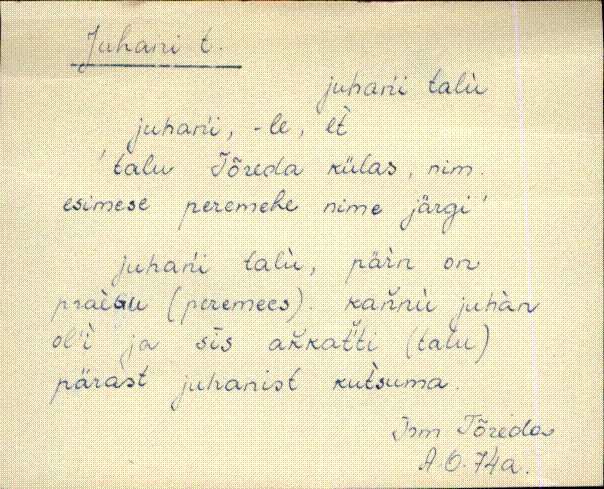 Juhani t.
juhań́i talù
juhańi, -le, èt
'talu Tõreda külas, nim.
esimese peremehe nime järgi'
juhańi talù, pär̀n on
(peremees). kaǹnù juhàn
ol'ì ja sīs akkat̆ti (talu)
pärast juhanist kutsuma.
Irm Tõreda
A.O. 74a.